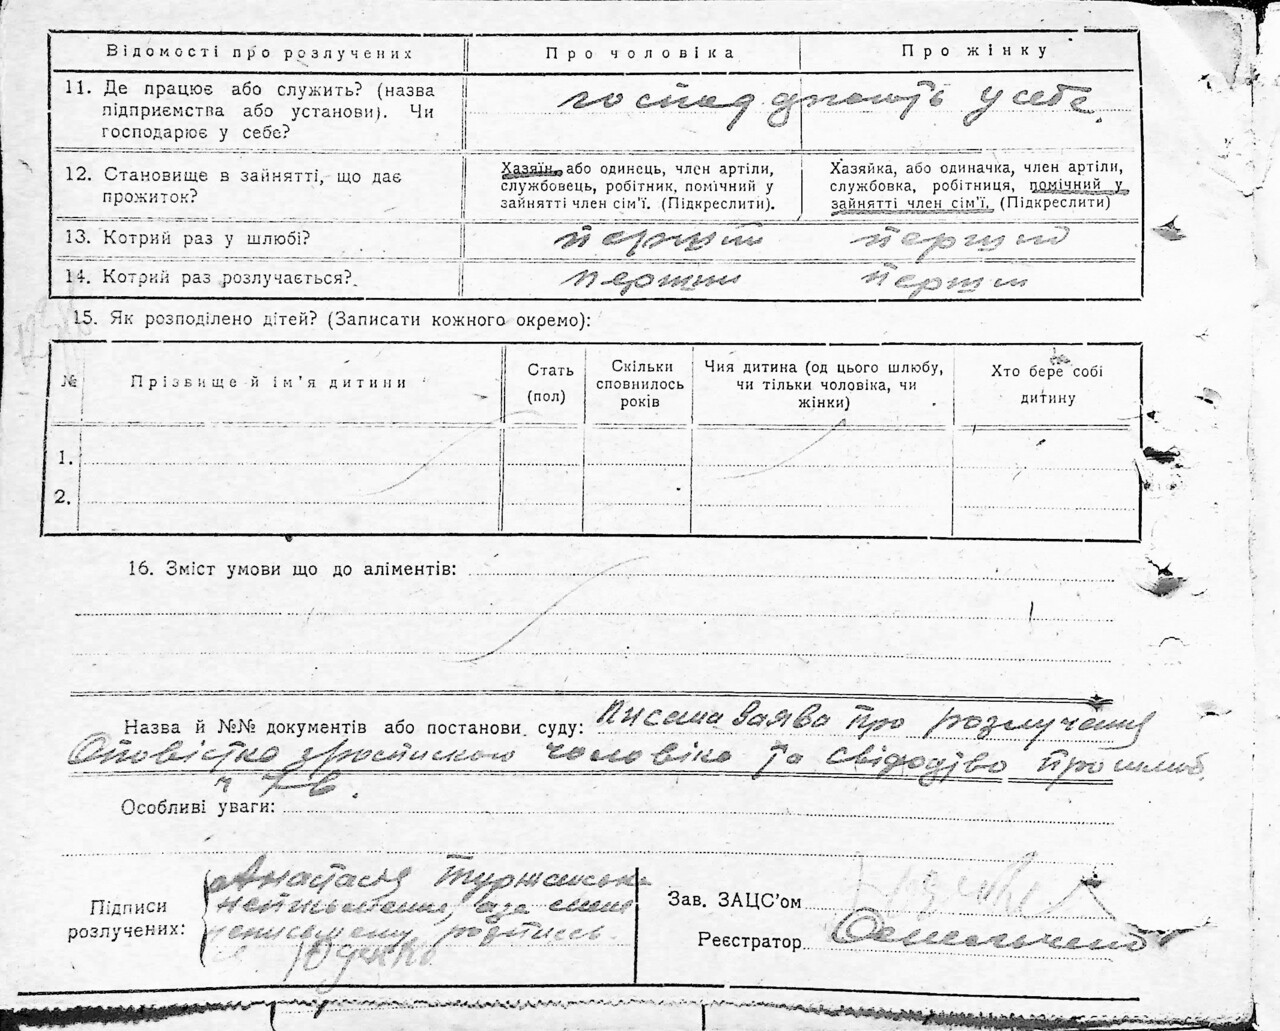 Відомості про розлучених
Про чоловіка
Про жінку
11. Де працює або служить? (назва
підприємства або установи). Чи
господарює у себе?
господарють у себе.
12. Становище в зайнятті, що дає
прожиток?
Хазяїн, або одинець, член артіли,
службовець, робітник, помічний у
зайнятті член сім'ї. (Підкреслити).
Хазяйка, або одиначка, член артіли,
службовка, робітниця, помічний у
зайнятті член сім'ї. (Підкреслити)
13. Котрий раз у шлюбі?
перший
перший
14. Котрий раз розлучається?
перший
перший
15. Як розподілено дітей? (Записати кожного окремо):
№
Прізвище й ім'я дитини
Стать
(пол)
Скільки
сповнилось
років
Чия дитина (од цього шлюбу,
чи тільки чоловіка, чи
жінки)
Хто бере собі
дитину
1.
2.
16. Зміст умови що до аліментів:
Назва й №№ документів або постанови суду: писана заява про розлучення
Оповістка з роспискою чоловіка та свідодтво про шлюб
№ 7
Особливі уваги:
Підписи
розлучених:
Анастасія
неписьменна, а за
роспись
Зав. ЗАЦС'ом
Реєстратор Омельченко